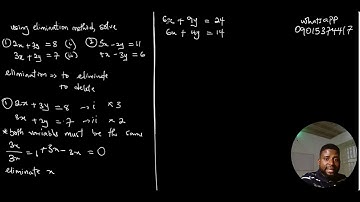 using elimination method, solve
① 2x + 3y = 8 (i) ② 5x - 2y = 11
3x + 2y = 7 (ii) 4x - 3y = 6
elimination => to eliminate
to delete
① 2x + 3y = 8 → i × 3
3x + 2y = 7 → ii × 2
* both variables must be the same
3x/3x = 1 + 3x - 3x = 0
eliminate x
6x + 9y = 24
6x + 4y = 14
whatsapp
09015374417